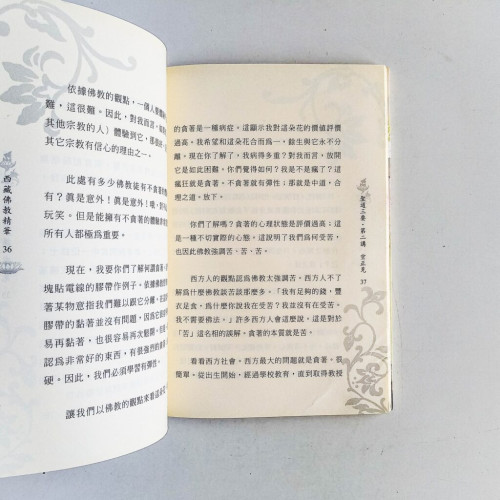 依據佛教的觀點，一個人
難，這很難。因此，對我而言，
其他宗教的人）體驗到它，那
其它宗教有信心的理由之一。
此處有多少佛教徒有不貪著
有？真是意外！真是意外！哦，
玩笑。但是能擁有不貪著的
所有人都極為重要。
現在，我要你們了解何謂貪著
塊貼電線的膠帶作例子。依據佛
著某物意指我們難以跟它分離。
膠帶的黏著並沒有問題，因為它
易再黏著，也很容易再次鬆開。但
認為非常好的東西，有很強烈的
硬。因此，我們必須學習有彈性。
讓我們以佛教的觀點來看這
西藏佛教精華
36
的貪著是一種病症。這顯示我對這朵花的價值評價
過高。我希望和這朵花合而為一，餘生與它永不分
離。現在你了解了，我病得多重？對我而言，放開
它是如此困難。你們覺得如何？我是不是瘋了？這
瘋狂就是貪著。不貪著就有彈性；那就是中道，合
理之道。放下。
你們了解嗎？貪著的心理狀態是評價過高；這
是一種不切實際的心態。這說明了我們為何受苦，
也因此佛教強調苦、苦、苦。
西方人的觀點認為佛教太強調苦。西方人不了
解為什麼佛教談苦談那麼多。「我有足夠的錢，豐
衣足食，為什麼你說我在受苦？我並沒有在受苦。我
不需要佛法。」許多西方人會這麼說，這是對於
「苦」這名相的誤解。貪著的本質就是苦。
看看西方社會。西方最大的問題就是貪著。
簡單。從出生開始，經過學校教育，直到取得教授
聖道三要‧第二講 空正見
37